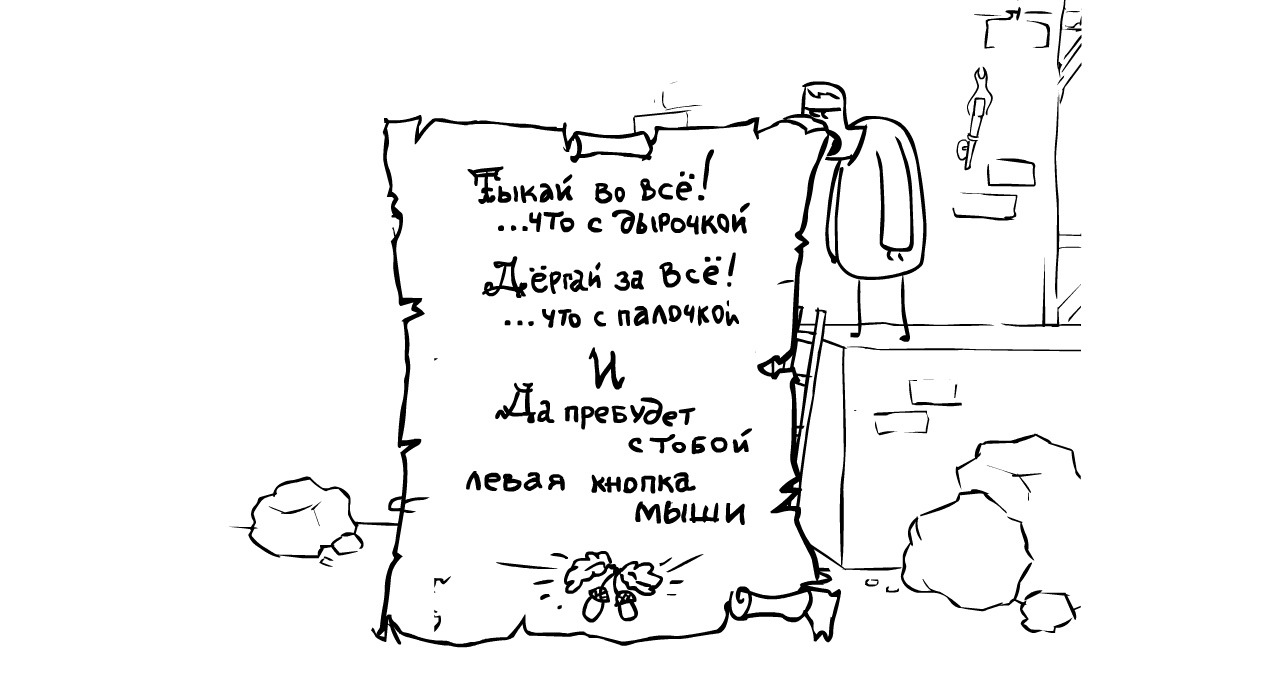 Тыкай во всё!
...что с дырочкой
Дёргай за всё!
...что с палочкой
И
Да пребудет
с тобой
левая кнопка
мыши